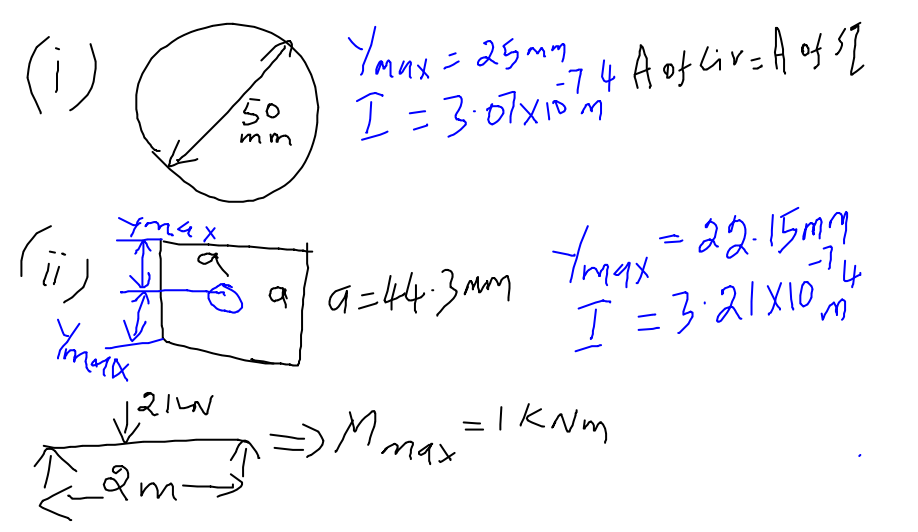 (i)
50
mm
Ymax = 25mm
I = 3.07×10⁻⁷ m⁴
A of Cir = A of sq
(ii)
Ymax
a
a
Ymax
a = 44.3mm
Ymax = 22.15mm
I = 3.21×10⁻⁷ m⁴
2kN
2m
⇒ Mmax = 1 KNm